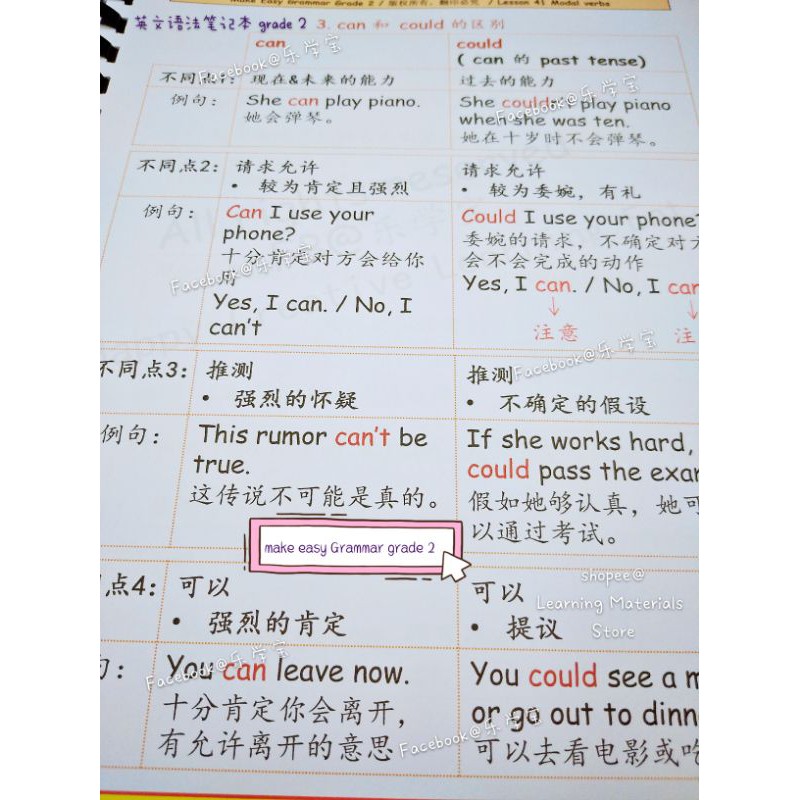 Make Easy Grammar Grade 2 / 版权所有，翻印必究 / Lesson 41 Modal verbs
英文语法笔记本 grade 2 3. can 和 could 的区别
can could
( can 的 past tense)
不同点1: 现在&未来的能力 过去的能力
例句： She can play piano. She couldn't play piano
她会弹琴。 when she was ten.
她在十岁时不会弹琴。
不同点2: 请求允许 请求允许
• 较为肯定且强烈 • 较为委婉，有礼
例句： Can I use your Could I use your phone?
phone? 委婉的请求，不确定对方
十分肯定对方会给你 会不会完成的动作
用
Yes, I can. / No, I Yes, I can. / No, I can
can't
注意 注
不同点3: 推测 推测
• 强烈的怀疑 • 不确定的假设
例句： This rumor can't be If she works hard,
true. could pass the exam
这传说不可能是真的。 假如她够认真，她可
以通过考试。
make easy Grammar grade 2
点4: 可以 可以
• 强烈的肯定 • 提议
句： You can leave now. You could see a m
十分肯定你会离开， or go out to dinn
有允许离开的意思 可以去看电影或吃
Facebook@乐学宝
Facebook@乐学宝
Facebook@乐学宝
Facebook@乐学宝
Facebook@乐学宝
Facebook@乐学宝
Facebook@乐学宝
shopee@
Learning Materials
Store